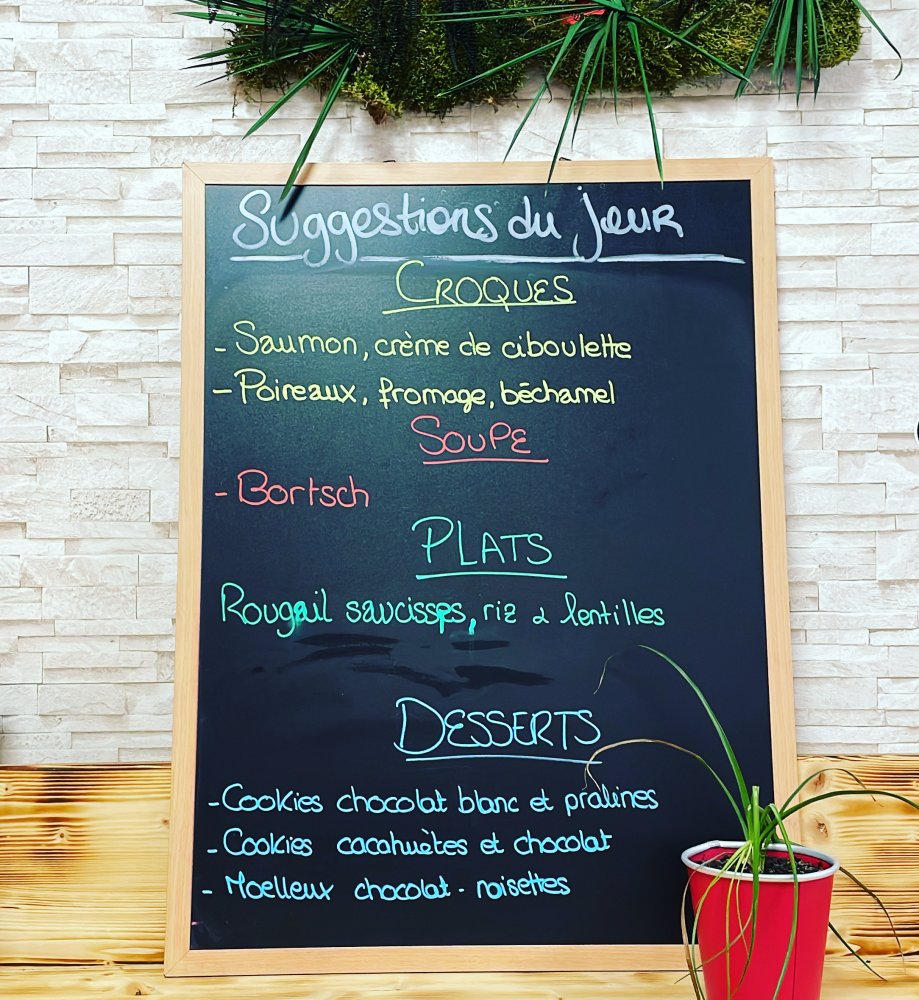 Suggestions du jour
CROQUES
- Saumon, crème de ciboulette
- Poireaux, fromage, béchamel
SOUPE
- Bortsch
PLATS
Rougail saucisses, riz & lentilles
DESSERTS
- Cookies chocolat blanc et pralines
- Cookies cacahuètes et chocolat
- Moelleux chocolat - noisettes